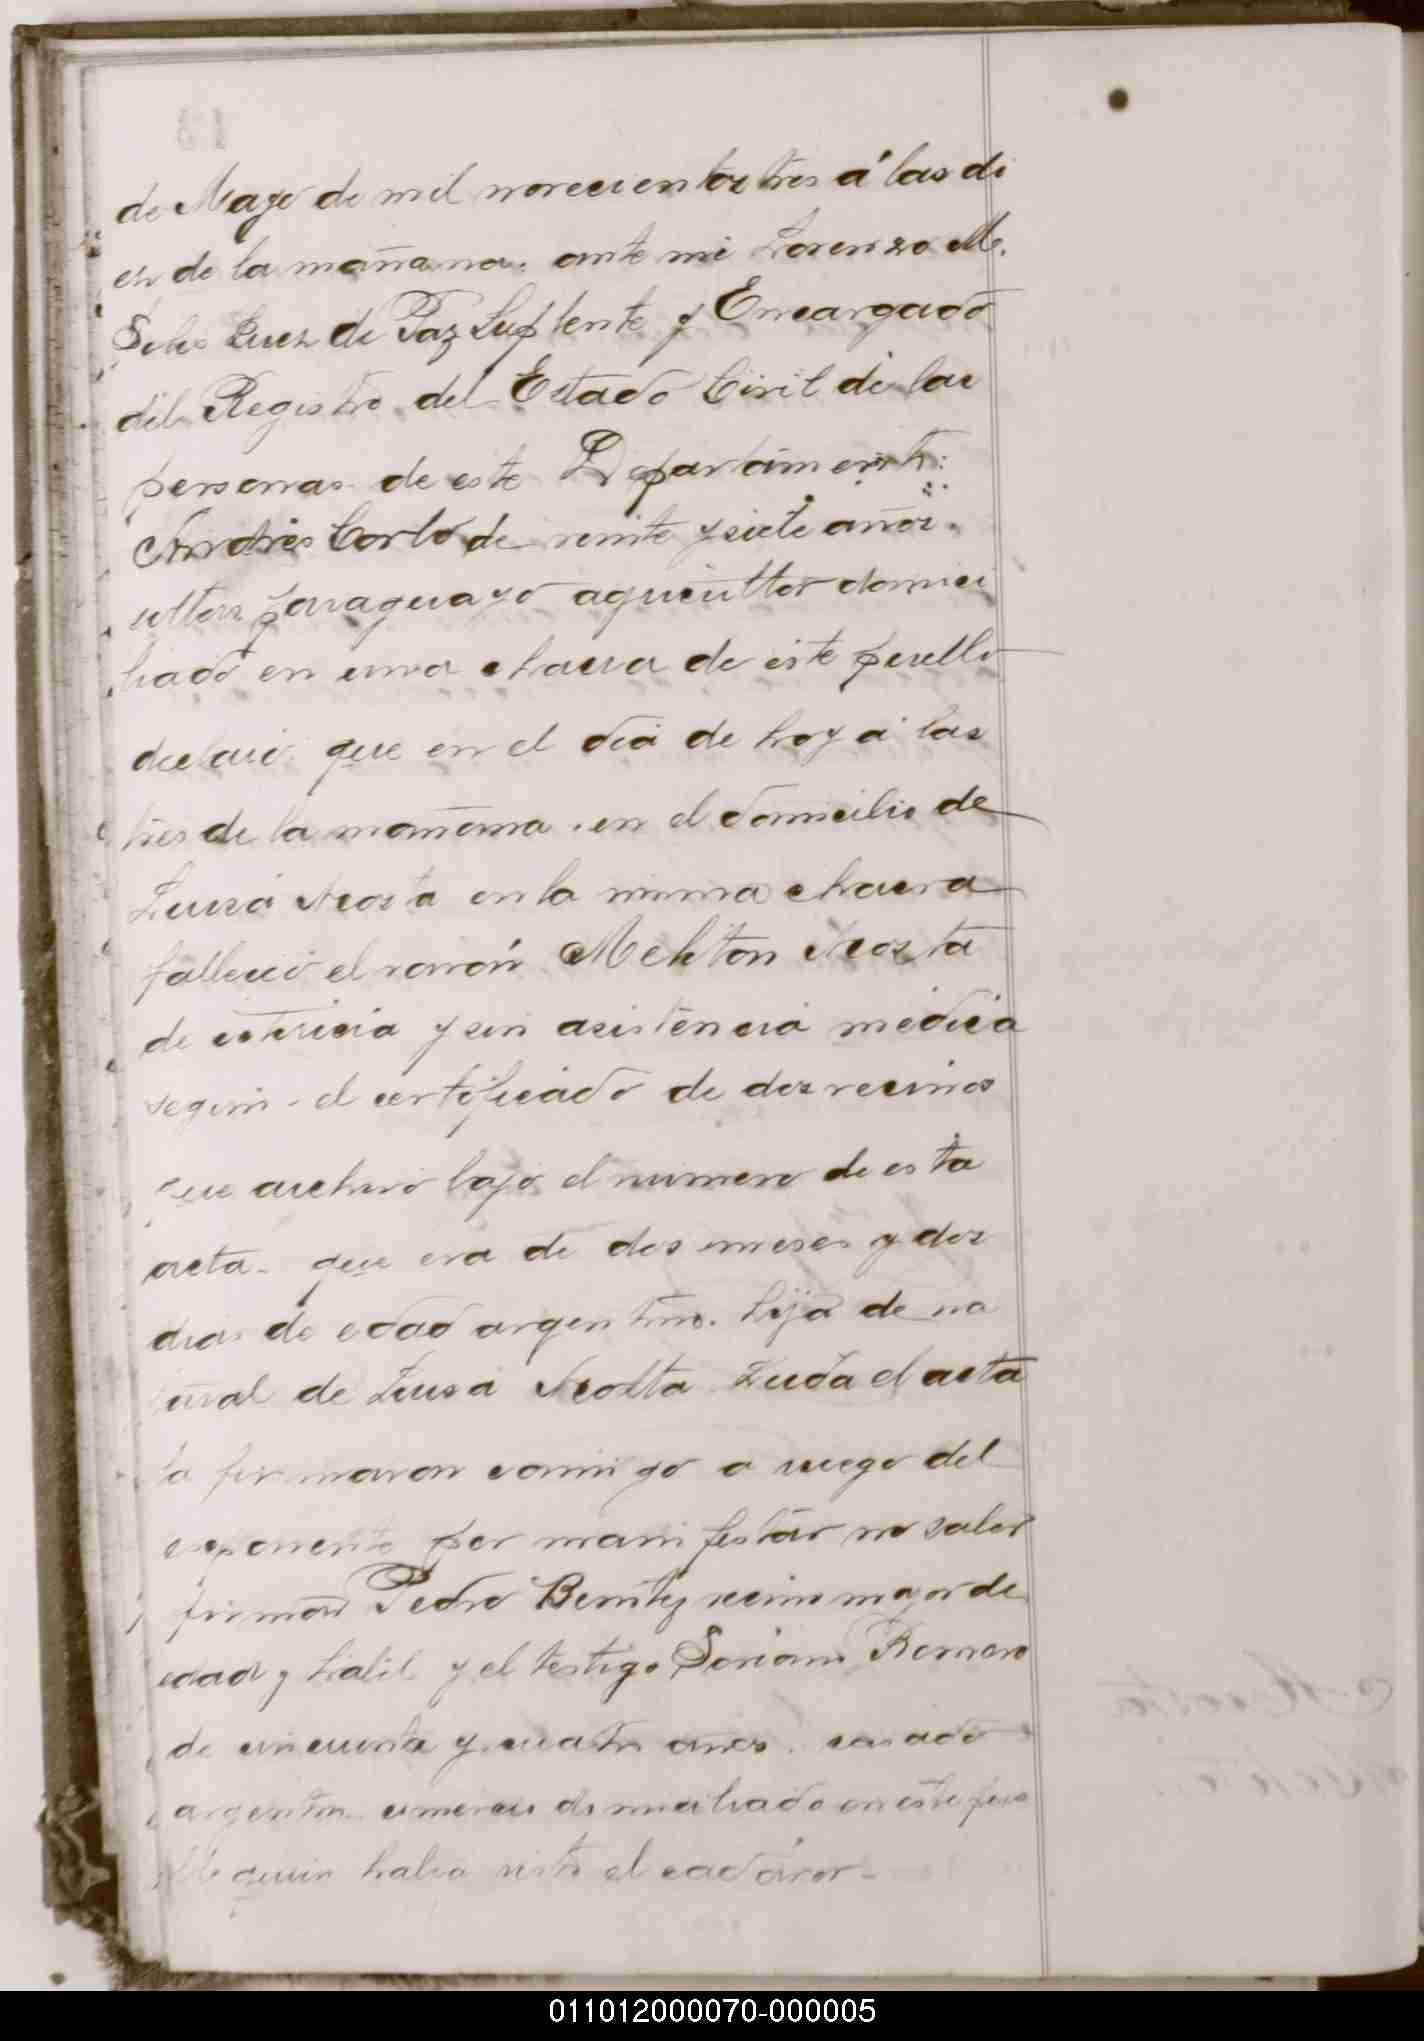 de Mayo de mil novecientos tres á las di
ez de la mañana. ante mi Lorenzo M.
Juez de Paz Suplente y Encargado
del Registro del Estado Civil de las
personas de este Departamento:
Andrés de veinte y siete años.
soltero paraguayo agricultor domici
liado en una chacra de este puello
declaró que en el dia de hoy á las
tres de la mañana. en el domicilio de
Luisa Acosta en la misma chacra
falleció el varón Meliton Acosta
de ictericia y sin asistencia médica
segun el certificado de dos vecinos
que archivo bajo el numero de esta
acta. que era de dos meses y dos
dias de edad argentino. hijo de na
tural de Luisa Acosta Leida el acta
la firmaron conmigo a ruego del
esponente por manifestar no saber
firmar Pedro Benitez vecino mayor de
edad y habil y el testigo Soriano Romero
de cincuenta y cuatro años. casado
argentino comercio domiciliado en este pue
blo quien habia visto el cadáver-
011012000070-000005